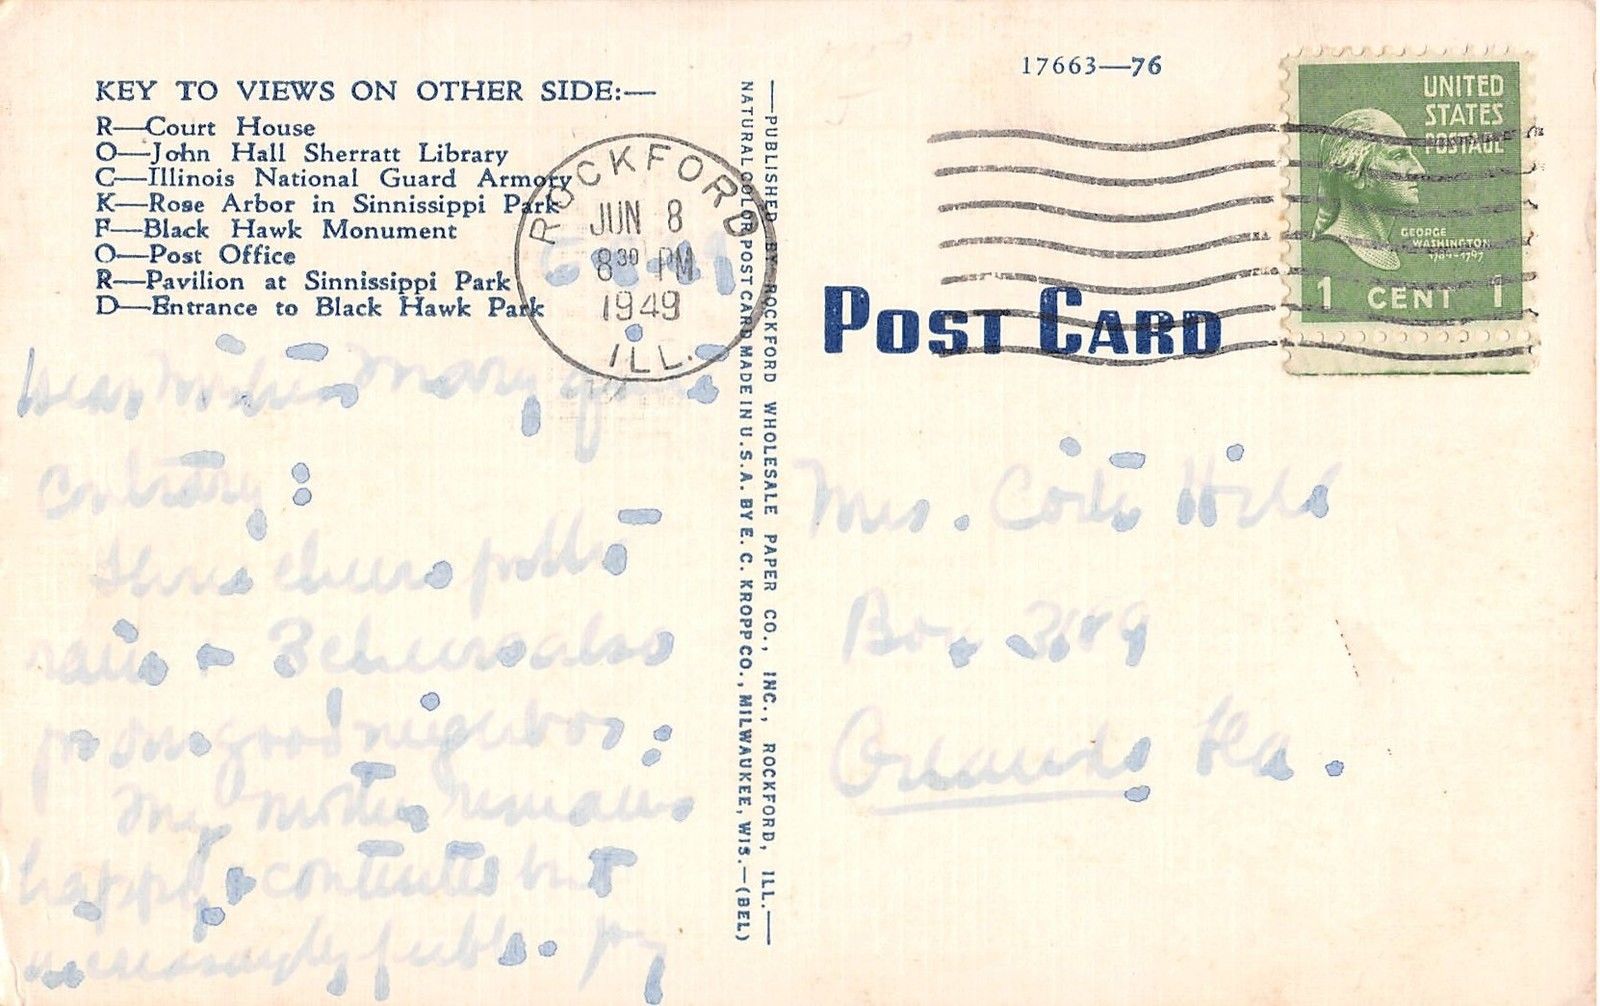 KEY TO VIEWS ON OTHER SIDE:—
R—Court House
O—John Hall Sherratt Library
C—Illinois National Guard Armory
K—Rose Arbor in Sinnissippi Park
F—Black Hawk Monument
O—Post Office
R—Pavilion at Sinnissippi Park
D—Entrance to Black Hawk Park
ROCKFORD
JUN 8
8 30 PM
1949
ILL.
Mary
Contrary:
Three cheers for the
rain - 3 cheers also
for our good neighbor:
My mother remains
happy & contented but
feeble.
—PUBLISHED BY ROCKFORD WHOLESALE PAPER CO., INC., ROCKFORD, ILL.—
NATURAL COLOR POST CARD MADE IN U.S.A. BY E. C. KROPP CO., MILWAUKEE, WIS.—(BEL)
17663—76
UNITED
STATES
POSTAGE
GEORGE
WASHINGTON
1789-1797
1 CENT 1
POST CARD
Mrs.
Box
Orlando Fla.